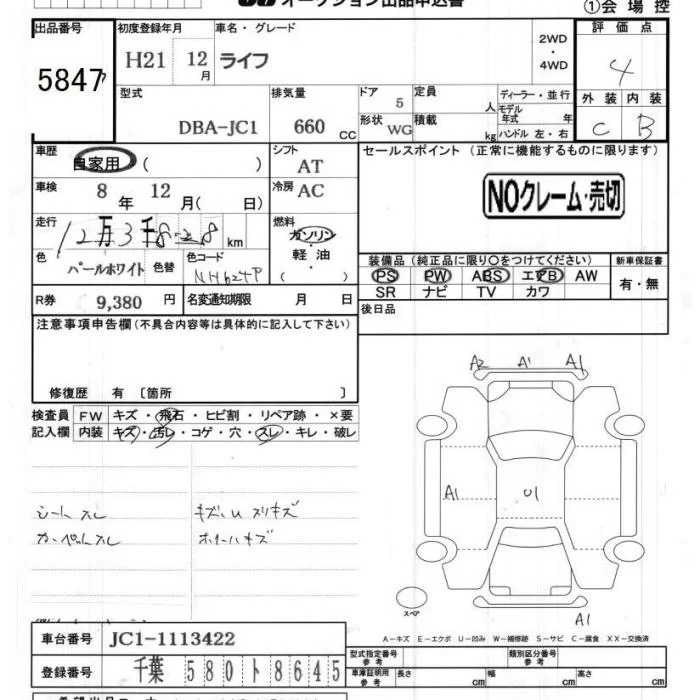 オークション出品申込書
①会場控
出品番号
5847
初度登録年月
H21 12月
車名・グレード
ライフ
2WD
・
4WD
評価点
4
外装 内装
C B
型式
DBA-JC1
排気量
660 CC
ドア 5
形状 WG
定員 人
積載 kg
ディーラー・並行
モデル年式 年
ハンドル 左・右
車歴
自家用 ( )
シフト
AT
車検
8 年 12 月( 日)
冷房
AC
走行
12万3千828 km
燃料
ガソリン
・
軽油
( )
色
パールホワイト
色替
色コード
NH624P
R券 9,380 円
名変通知期限 月 日
セールスポイント (正常に機能するものに限ります)
NOクレーム・売切
装備品(純正品に限り○をつけてください)
PS PW ABS エアB AW
SR ナビ TV カワ
新車保証書
有・無
後日品
注意事項申告欄(不具合内容等は具体的に記入して下さい)
修復歴 有 〔箇所 〕
検査員記入欄
FW キズ・飛石・ヒビ割・リペア跡・×要
内装 キズ・汚レ・コゲ・穴・スレ・キレ・破レ
シートスレ
カーペットスレ
キズ、U スリキズ
ホイールキズ
A2 A1 A1
A1
U1
A1
スペア
A-キズ E-エクボ U-凹み W-補修跡 S-サビ C-腐食 XX-交換済
車台番号 JC1-1113422
登録番号 千葉 580 ト 8645
型式指定番号
参考
類別区分番号
参考
車庫証明用
参考
長さ cm 幅 cm 高さ cm